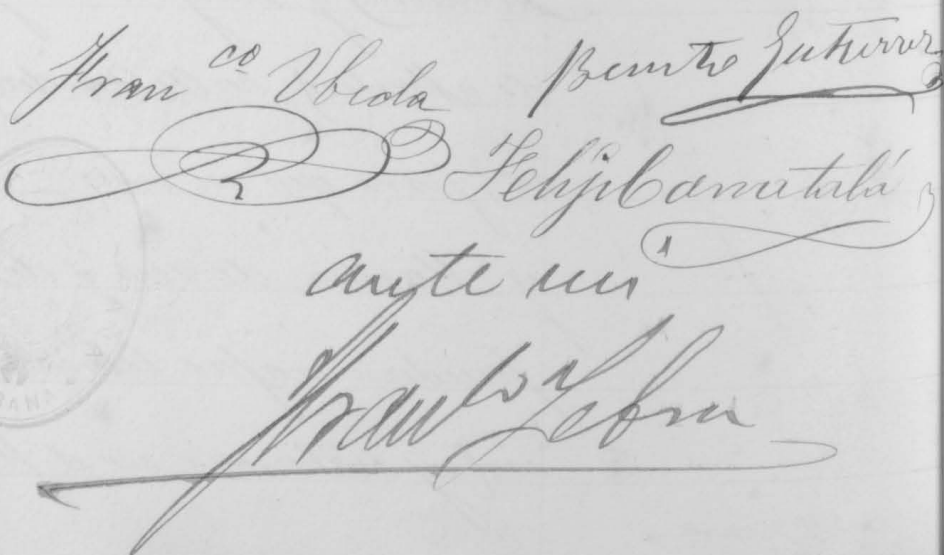 Franco Ubeda Benito Gutierrez
Felip Camatalá
ante mi
Franco